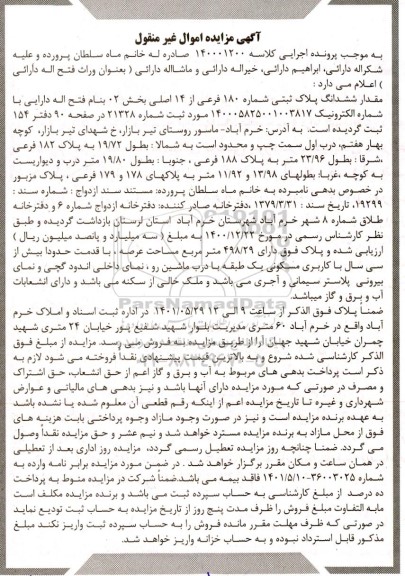 آگهی مزایده اموال غیر منقول
به موجب پرونده اجرایی کلاسه ۱۴۰۰۰۱۲۰۰ صادره له خانم ماه سلطان پرورده و علیه
شکراله دارائی، ابراهیم دارائی، خیراله دارائی و ماشااله دارائی ( بعنوان وراث فتح اله دارائی
) اعلام می دارد :
مقدار ششدانگ پلاک ثبتی شماره ۱۸۰ فرعی از ۱۴ اصلی بخش ۰۲ بنام فتح اله دارایی با
شماره الکترونیک ۱۴۰۰۰۵۸۲۵۰۰۱۰۰۳۸۱۷ مورد ثبت شماره ۲۱۳۲۸ در صفحه ۹۰ دفتر ۱۵۴
ثبت گردیده است. به آدرس: خرم آباد- ماسور روستای تیر بازار، خ شهدای تیر بازار، کوچه
بهار هفتم، درب اول سمت چپ و محدود است به شمالا : بطول ۱۹/۷۲ به پلاک ۱۸۲ فرعی
،شرقا : بطول ۲۳/۹۶ متر به پلاک ۱۸۸ فرعی ، جنوبا : بطول ۱۹/۸۰ متر درب و دیواریست
به کوچه ،غربا: بطولهای ۱۳/۹۸ و ۱۱/۹۲ متر به پلاکهای ۱۷۸ و ۱۷۹ فرعی ، پلاک مزبور
در خصوص بدهی نامبرده به خانم ماه سلطان پرورده: مستند سند ازدواج : شماره سند :
۱۹۲۹۹، تاریخ سند : ۱۳۷۹/۳/۳۱ ،دفترخانه صادر کننده: دفترخانه ازدواج شماره ۶ و دفترخانه
طلاق شماره ۸ شهر خرم آباد شهرستان خرم آباد استان لرستان بازداشت گردیده و طبق
نظر کارشناس رسمی در مورخ ۱۴۰۰/۱۲/۲۳ به مبلغ ( سه میلیارد و پانصد میلیون ریال )
ارزیابی شده و پلاک فوق دارای ۴۹۸/۲۹ متر مربع مساحت عرصه ، با قدمت حدودا بیش از
سی سال با کاربری مسکونی یک طبقه با درب ماشین رو ، نمای داخلی اندود گچی و نمای
بیرونی پلاستر سیمانی و آجری می باشد و ملک خالی از سکنه می باشد و دارای انشعابات
آب و برق و گاز میباشد.
ضمنا پلاک فوق الذکر از ساعت ۹ الی ۱۳ ۱۴۰۱/۰۵/۲۹ در اداره ثبت اسناد و املاک خرم
آباد واقع در خرم آباد ۶۰ متری مدیریت بلوار شهید شفیع پور خیابان ۲۴ متری شهید
چمران خیابان شهید جهان آرا از طریق مزایده به فروش می رسد. مزایده از مبلغ فوق
الذکر کارشناسی شده شروع و به بالاترین قیمت پیشنهادی نقدا فروخته می شود لازم به
ذکر است پرداخت بدهی های مربوط به آب و برق و گاز اعم از حق انشعاب، حق اشتراک
و مصرف در صورتی که مورد مزایده دارای آنها باشد و نیز بدهی های مالیاتی و عوارض
شهرداری و غیره تا تاریخ مزایده اعم از اینکه رقم قطعی آن معلوم شده یا نشده باشد
به عهده برنده مزایده است و نیز در صورت وجود مازاد وجوه پرداختی بابت هزینه های
فوق از محل مازاد به برنده مزایده مسترد خواهد شد و نیم عشر و حق مزایده نقداً وصول
می گردد. ضمنا چنانچه روز مزایده تعطیل رسمی گردد، مزایده روز اداری بعد از تعطیلی
در همان ساعت و مکان مقرر برگزار خواهد شد . در ضمن مورد مزایده برابر نامه وارده به
شماره ۳۶۰۰۳۰۲۵-۱۴۰۱/۵/۱۰ فاقد بیمه می باشد.ضمناً شرکت در مزایده منوط به پرداخت
ده درصد از مبلغ کارشناسی به حساب سپرده ثبت می باشد و برنده مزایده مکلف است
مابه التفاوت مبلغ فروش را ظرف مدت پنج روز از تاریخ مزایده به حساب ثبت تودیع نماید
در صورتی که ظرف مهلت مقرر مانده فروش را به حساب سپرده ثبت واریز نکند مبلغ
مذکور قابل استرداد نبوده و به حساب خزانه واریز خواهد شد.
ParsNamadData